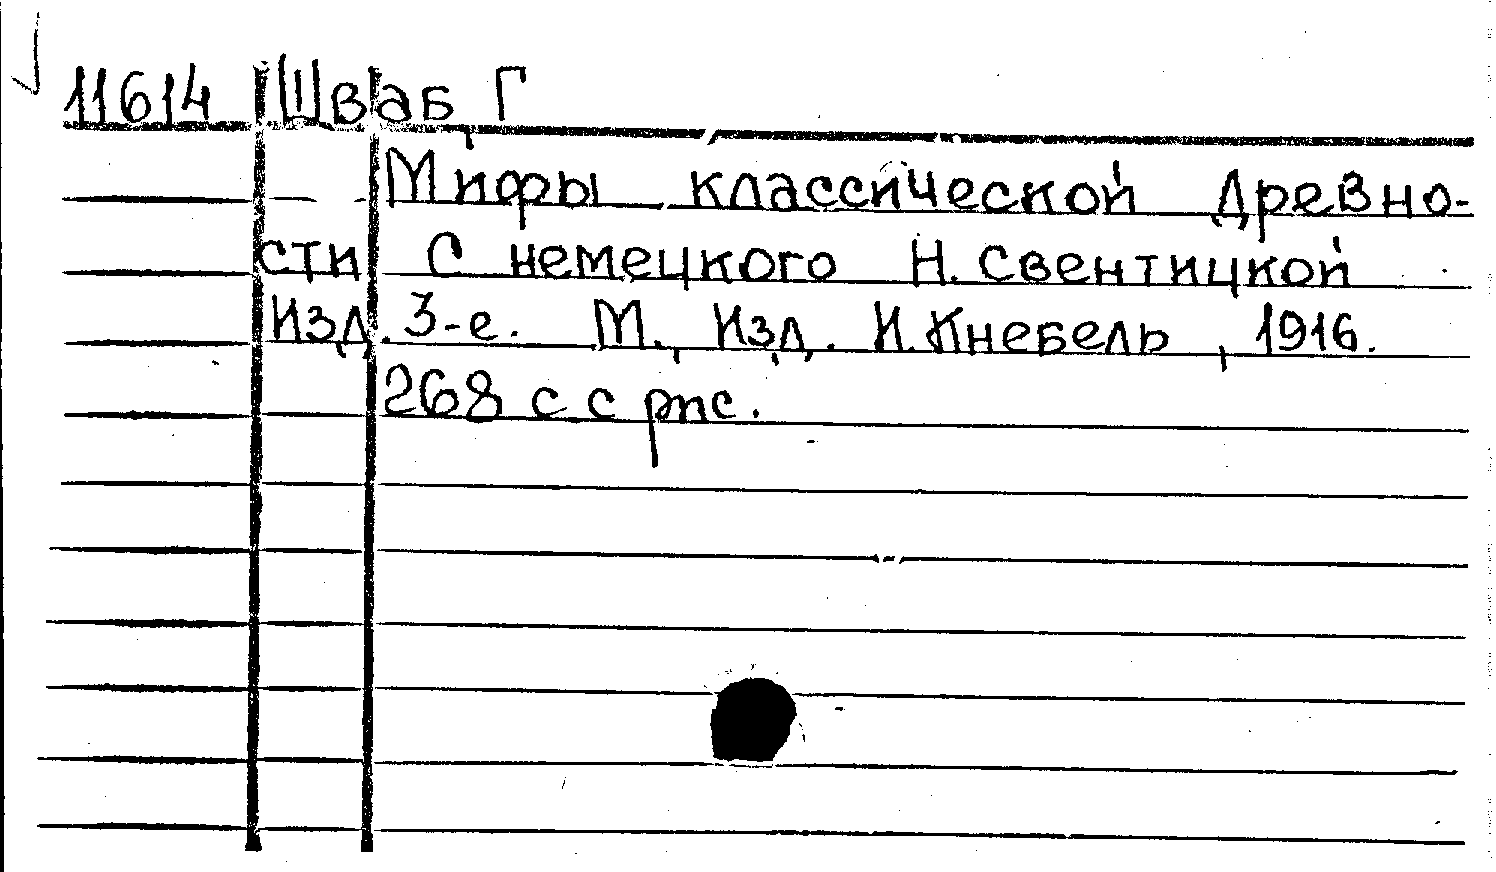 11614 Шваб, Г
Мифы классической древно-
сти С немецкого Н. Свентицкой
Изд. 3-е. М., Изд. И. Кнебель, 1916.
268 с с рис.